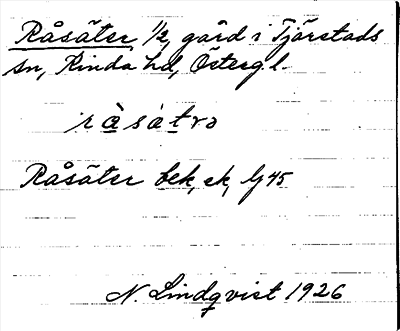 Råsäter 1/2, gård i Tjärstads
sn, Kinda hd, Östergl.
ràsàtrə
Råsäter bek, ek, lj 45
N. Lindqvist 1926